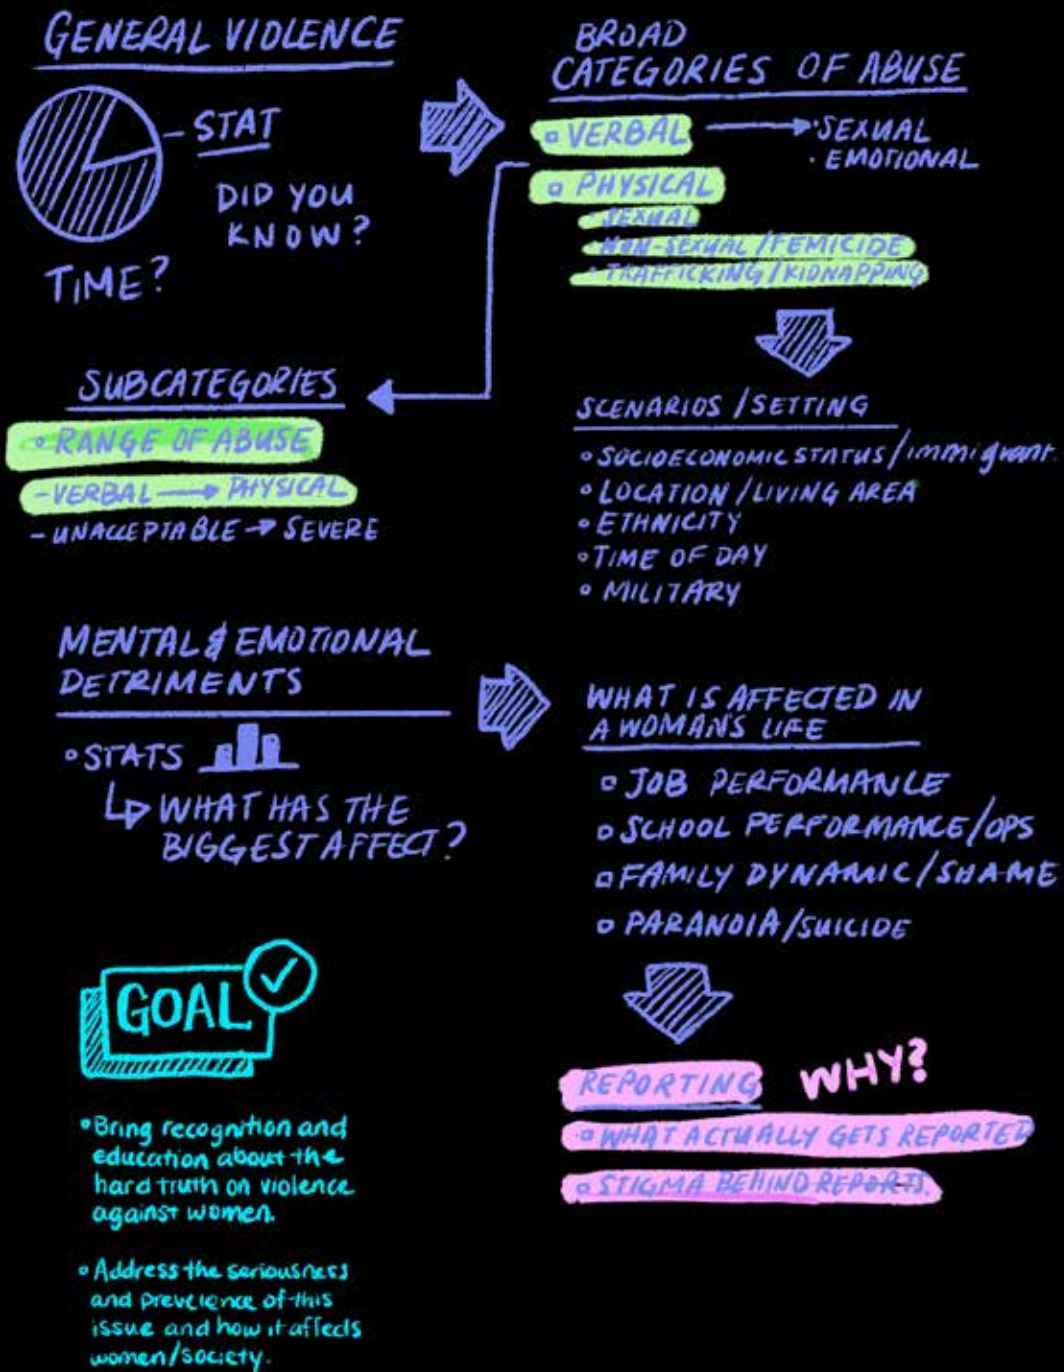 GENERAL VIOLENCE
STAT
DID YOU
KNOW?
TIME?
BROAD
CATEGORIES OF ABUSE
VERBAL
SEXUAL
EMOTIONAL
PHYSICAL
SEXUAL
NON-SEXUAL/FEMICIDE
TRAFFICKING/KIDNAPPING
SUBCATEGORIES
RANGE OF ABUSE
- VERBAL → PHYSICAL
- UNACCEPTABLE → SEVERE
SCENARIOS/SETTING
SOCIOECONOMIC STATUS/immigrant.
LOCATION/LIVING AREA
ETHNICITY
TIME OF DAY
MILITARY
MENTAL & EMOTIONAL
DETRIMENTS
STATS
WHAT HAS THE
BIGGEST AFFECT?
WHAT IS AFFECTED IN
A WOMAN'S LIFE
JOB PERFORMANCE
SCHOOL PERFORMANCE/OPS
FAMILY DYNAMIC/SHAME
PARANOIA/SUICIDE
REPORTING WHY?
WHAT ACTUALLY GETS REPORTED
STIGMA BEHIND REPORTS.
GOAL
Bring recognition and
education about the
hard truth on violence
against women.
Address the seriousness
and prevelence of this
issue and how it affects
women/society.